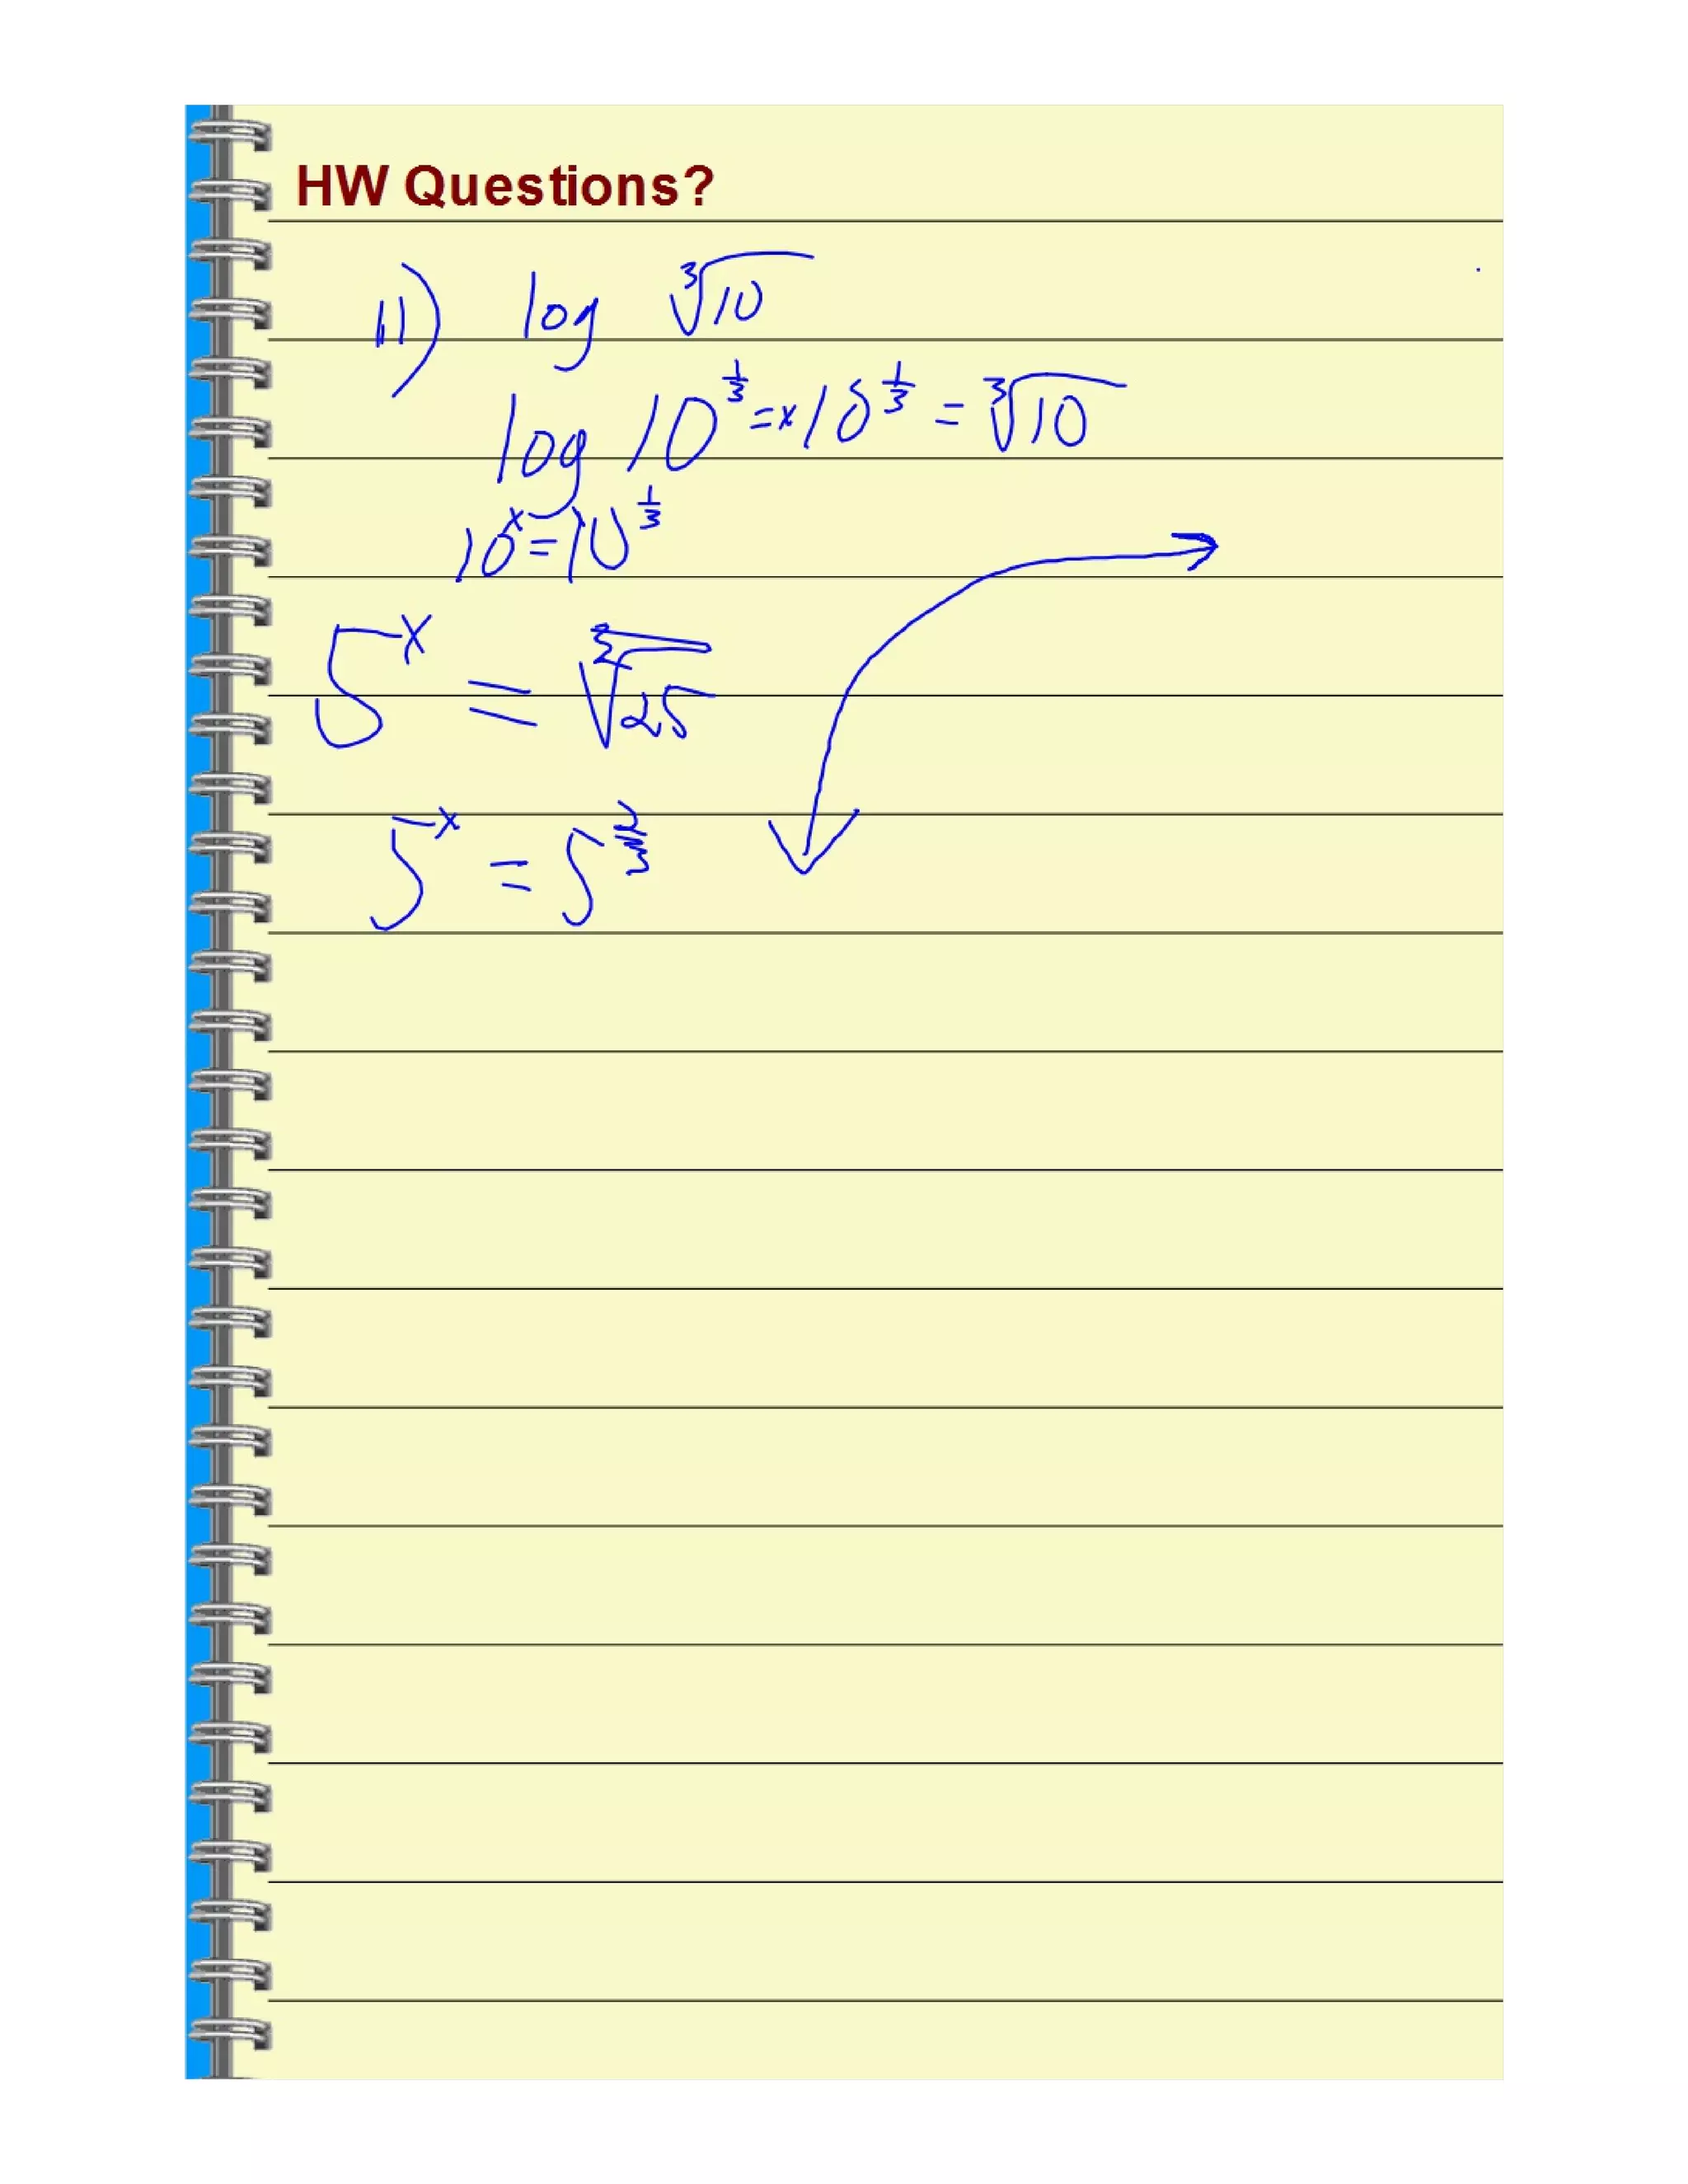 HW Questions?
11) log ∛10
log 10^(1/3) = x 10^(1/3) = ∛10
10^x = 10^(1/3)
5^x = ∛25
5^x = 5^(2/3)